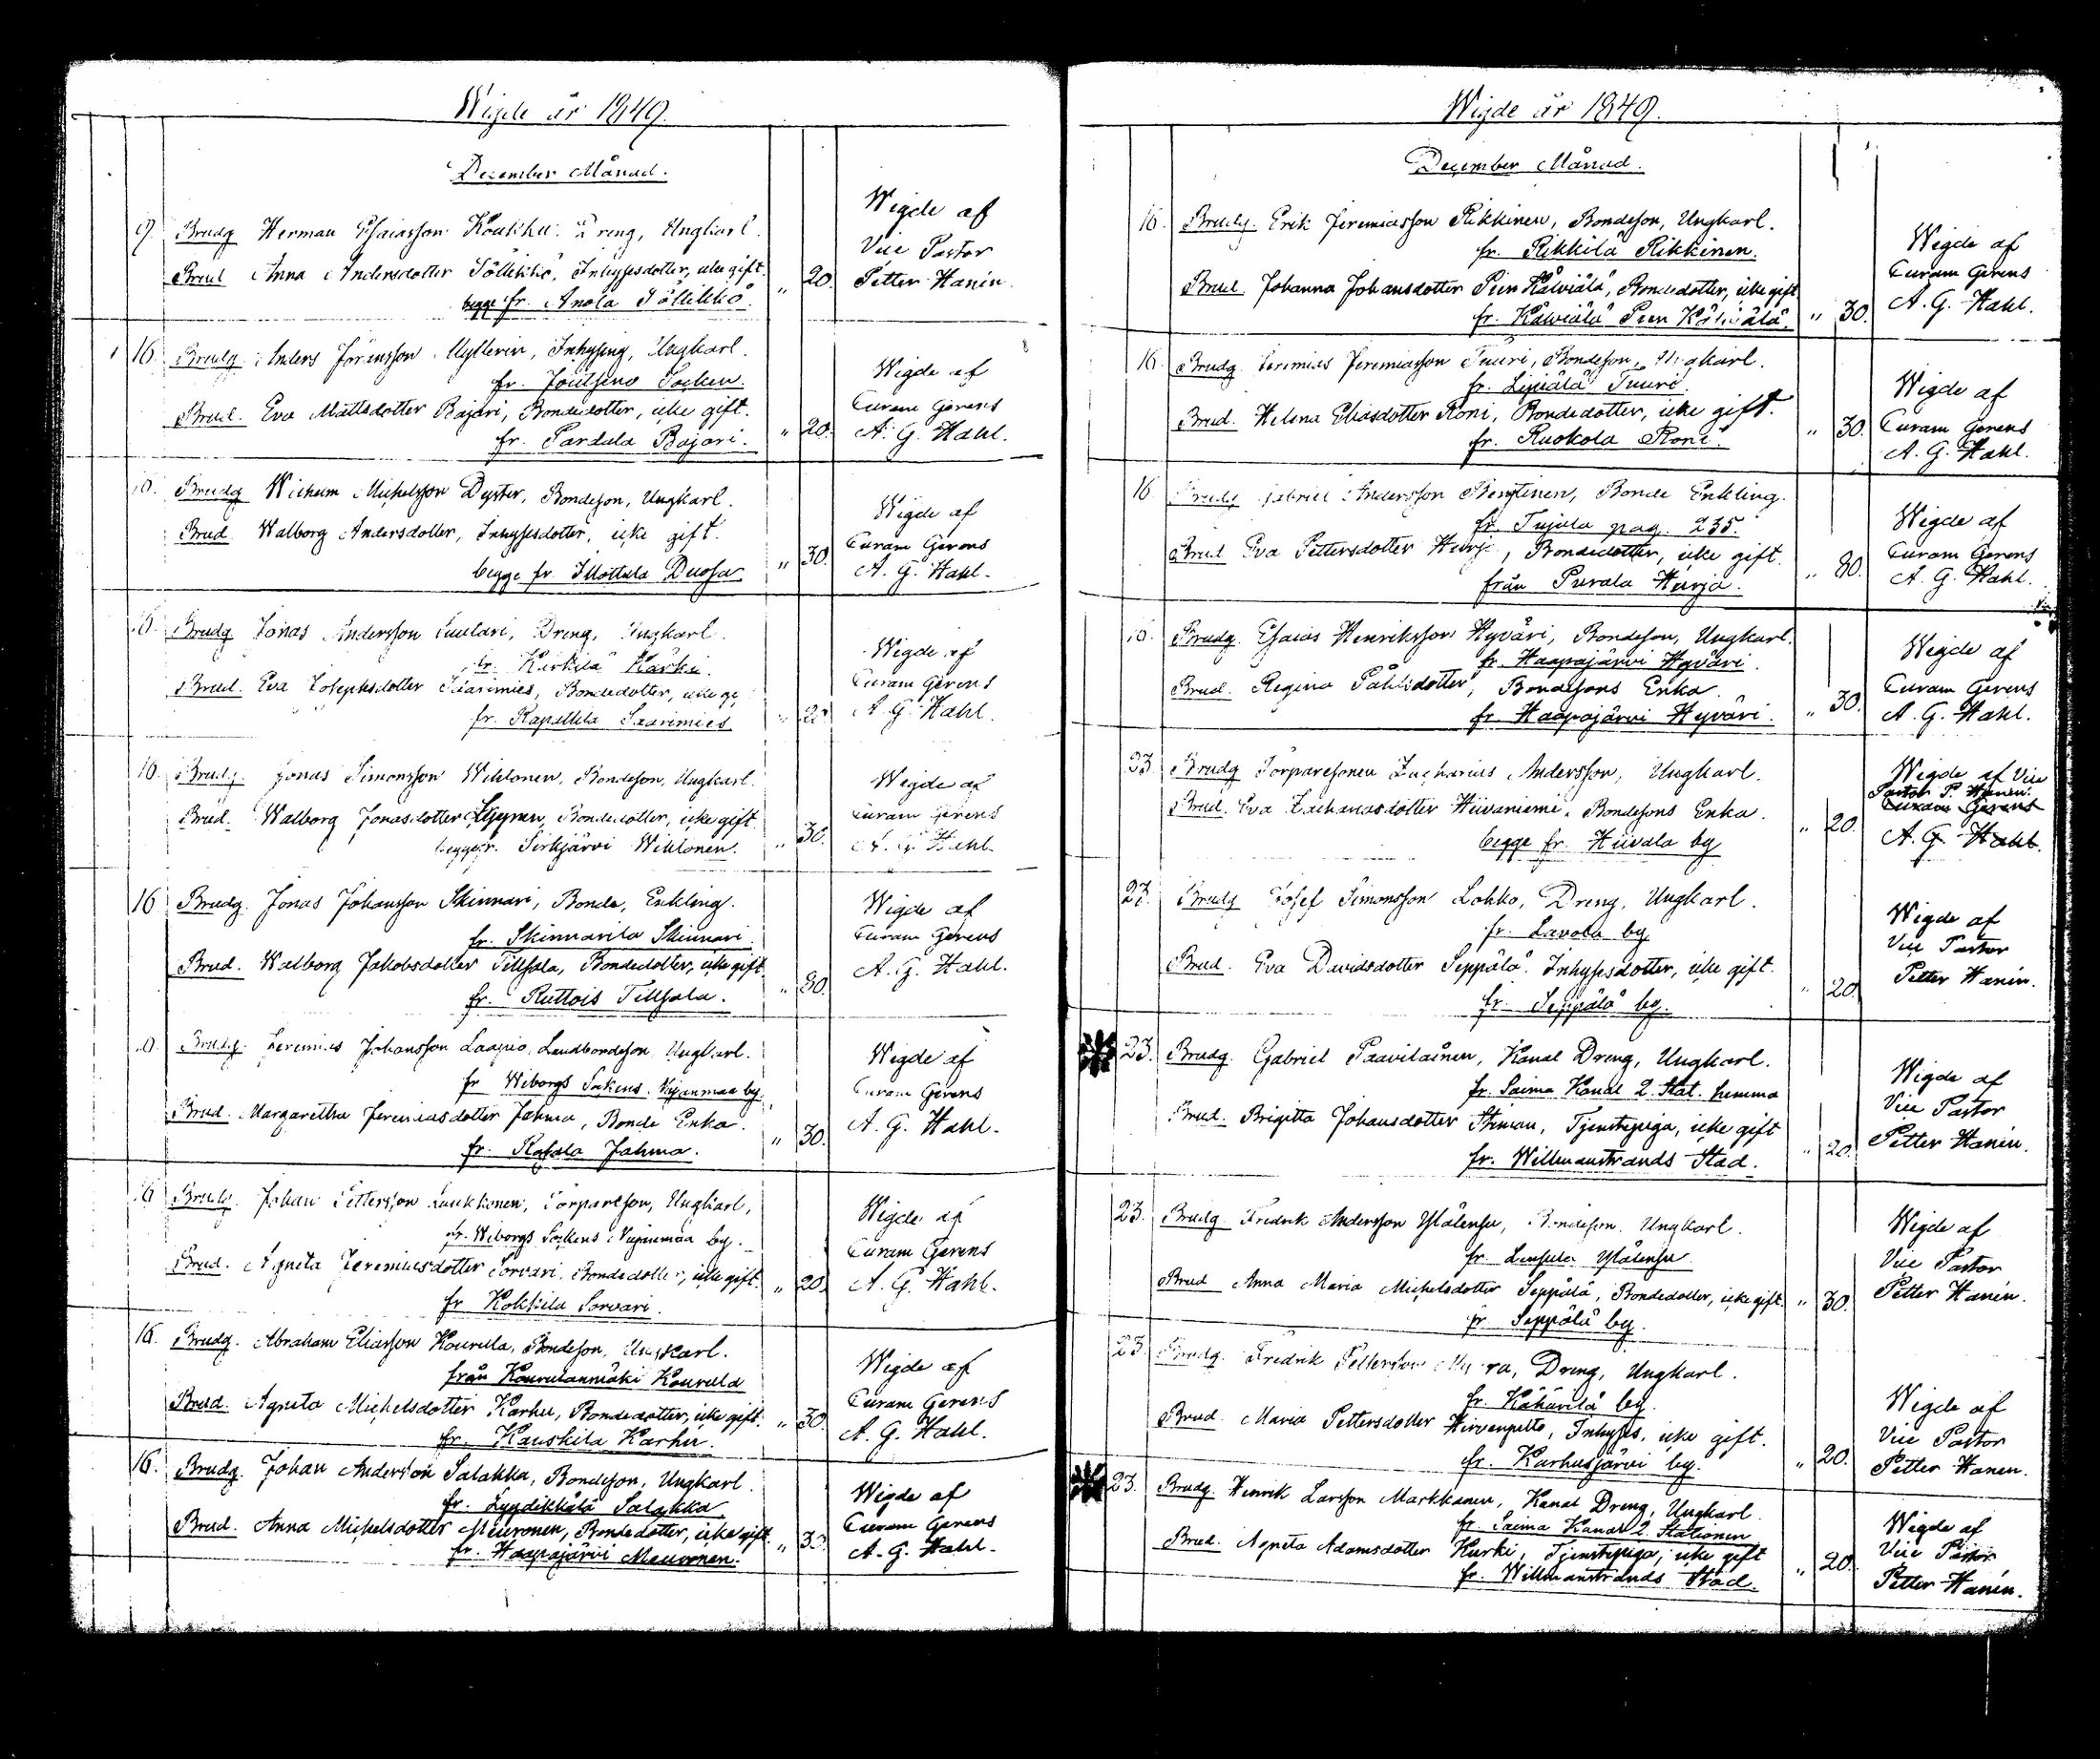 Wigde år 1849.
December Månad.
9 Brudg Herman Esaiasson Koukku. Dreng, Ungkarl.
Brud Anna Andersdotter Söllikkö, Inhysesdotter, icke gift.
begge fr. Anola Söllikkö. " 20.
Wigde af
Vice Pastor
Petter Hanén.
16. Brudg. Anders Göransson Myllerin, Inhysing, Ungkarl.
fr. Joutseno Socken.
Brud. Eva Mattsdotter Rajari, Bondedotter, icke gift.
fr. Partala Rajari. " 20.
Wigde af
Curam Gerens
A. G. Hahl.
Brudg Michelsson Dyster, Bondeson, Ungkarl.
Brud. Walborg Andersdotter, Inhysesdotter, icke gift.
begge fr. Illottula Duosa " 30.
Wigde af
Curam Gerens
A. G. Hahl.
Brudg Jonas Andersson Dreng, Ungkarl.
fr. Kurkila Karki.
Brud. Eva Josephsdotter Saarimies, Bondedotter, icke
fr. Rapattila Saarimies 20
Wigde af
Curam Gerens
A. G. Hahl.
16. Brudg. Jonas Simonsson Wihtonen, Bondeson, Ungkarl.
Brud. Walborg Jonasdotter Bondedotter, icke gift
begge fr. Sirkjärvi Wihtonen. " 30.
Wigde af
Curam Gerens
A. G. Hahl
16 Brudg. Jonas Johansson Skinnari, Bonde, Enkling.
fr. Skinnarila Skinnari.
Brud. Walborg Jakobsdotter Tillsala, Bondedotter, icke gift.
fr. Ruttois Tillsala. " 30.
Wigde af
Curam Gerens
A. G. Hahl.
Brudg. Jeremias Johansson Laapio, Landbondeson, Ungkarl.
fr Wiborgs Sokens Nuijanmaa by.
Brud. Margaretha Jeremiasdotter Jahma, Bonde Enka.
fr. Rasala Jahma. " 30.
Wigde af
Curam Gerens
A. G. Hahl.
16 Brudg. Johan Pettersson Laukkonen, Torpareson, Ungkarl,
fr. Wiborgs Sockens Nuijanmaa by.
Brud. Agneta Jeremiasdotter Sorvari, Bondedotter, icke gift.
fr Kokkila Sorvari. " 20.
Wigde af
Curam Gerens
A. G. Hahl.
16. Brudg. Abraham Eliasson Kourula, Bondeson, Ungkarl.
från Kourulanmäki Kourula
Brud. Agneta Michelsdotter Karhu, Bondedotter, icke gift.
fr. Kauskila Karhu. " 30.
Wigde af
Curam Gerens
A. G. Hahl.
16. Brudg. Johan Andersson Salakka, Bondeson, Ungkarl.
fr. Lyydikkälä Salakka.
Brud. Anna Michelsdotter Meuronen, Bondedotter, icke gift.
fr. Haapajärvi Meuronen. " 30
Wigde af
Curam Gerens
A. G. Hahl.
Wigde år 1849.
December Månad.
16. Brudg. Erik Jeremiasson Rikkinen, Bondeson, Ungkarl.
fr. Rikkilä Rikkinen.
Brud. Johanna Johansdotter Pien Kälviälä, Bondedotter, icke gift
fr. Kälviälä Pien Kälviälä. " 30.
Wigde af
Curam Gerens
A. G. Hahl.
16. Brudg. Jeremias Jeremiasson Tuuri, Bondeson, Ungkarl.
fr. Tuuri.
Brud. Helena Eliasdotter Roni, Bondedotter, icke gift.
fr. Ruokola Roni. " 30.
Wigde af
Curam Gerens
A. G. Hahl.
16 Brudg Gabriel Andersson Penttinen, Bonde Enkling.
fr. Tujula pag. 235.
Brud Eva Pettersdotter Hurja, Bondedotter, icke gift.
från Purala Hurja. " 30.
Wigde af
Curam Gerens
A. G. Hahl.
16. Brudg. Esaias Henriksson Hyväri, Bondeson, Ungkarl.
fr. Haapajärvi Hyväri.
Brud. Regina Påhlsdotter, Bondesons Enka.
fr. Haapajärvi Hyväri. " 30.
Wigde af
Curam Gerens
A. G. Hahl.
23. Brudg Torparesonen Zacharias Andersson, Ungkarl.
Brud. Eva Zachariasdotter Hiivaniemi, Bondesons Enka.
begge fr. Hiivala by " 20.
Wigde af Vice
Pastor P. Hanén.
Curam Gerens
A. G. Hahl.
23. Brudg Josef Simonsson Lohko, Dreng, Ungkarl.
fr. Lavola by
Brud. Eva Davidsdotter Seppälä, Inhysesdotter, icke gift.
fr. Seppälä by. " 20.
Wigde af
Vice Pastor
Petter Hanén.
23. Brudg. Gabriel Paavilainen, Kanal Dreng, Ungkarl.
fr. Saima Kanal 2. Stat. hemma
Brud. Brigitta Johansdotter Tjenstepiga, icke gift
fr. Willmanstrands Stad. " 20.
Wigde af
Vice Pastor
Petter Hanén.
23. Brudg Fredrik Andersson Ylälensu, Bondeson, Ungkarl.
fr. Lensula Ylälensu.
Brud Anna Maria Michelsdotter Seppälä, Bondedotter, icke gift.
fr Seppälä by. " 30.
Wigde af
Vice Pastor
Petter Hanén.
23. Brudg. Fredrik Pettersson Dreng, Ungkarl.
fr. Kähärilä by.
Brud. Maria Pettersdotter Hirvenpelto, Inhyses, icke gift.
fr. Karhusjärvi by. " 20.
Wigde af
Vice Pastor
Petter Hanén.
23. Brudg. Henrik Larsson Markkanen, Kanal Dreng, Ungkarl.
fr. Saima Kanal 2. Stationen
Brud. Agneta Adamsdotter Kurki, Tjenstepiga, icke gift
fr. Willmanstrands Stad. " 20.
Wigde af
Vice Pastor
Petter Hanén.